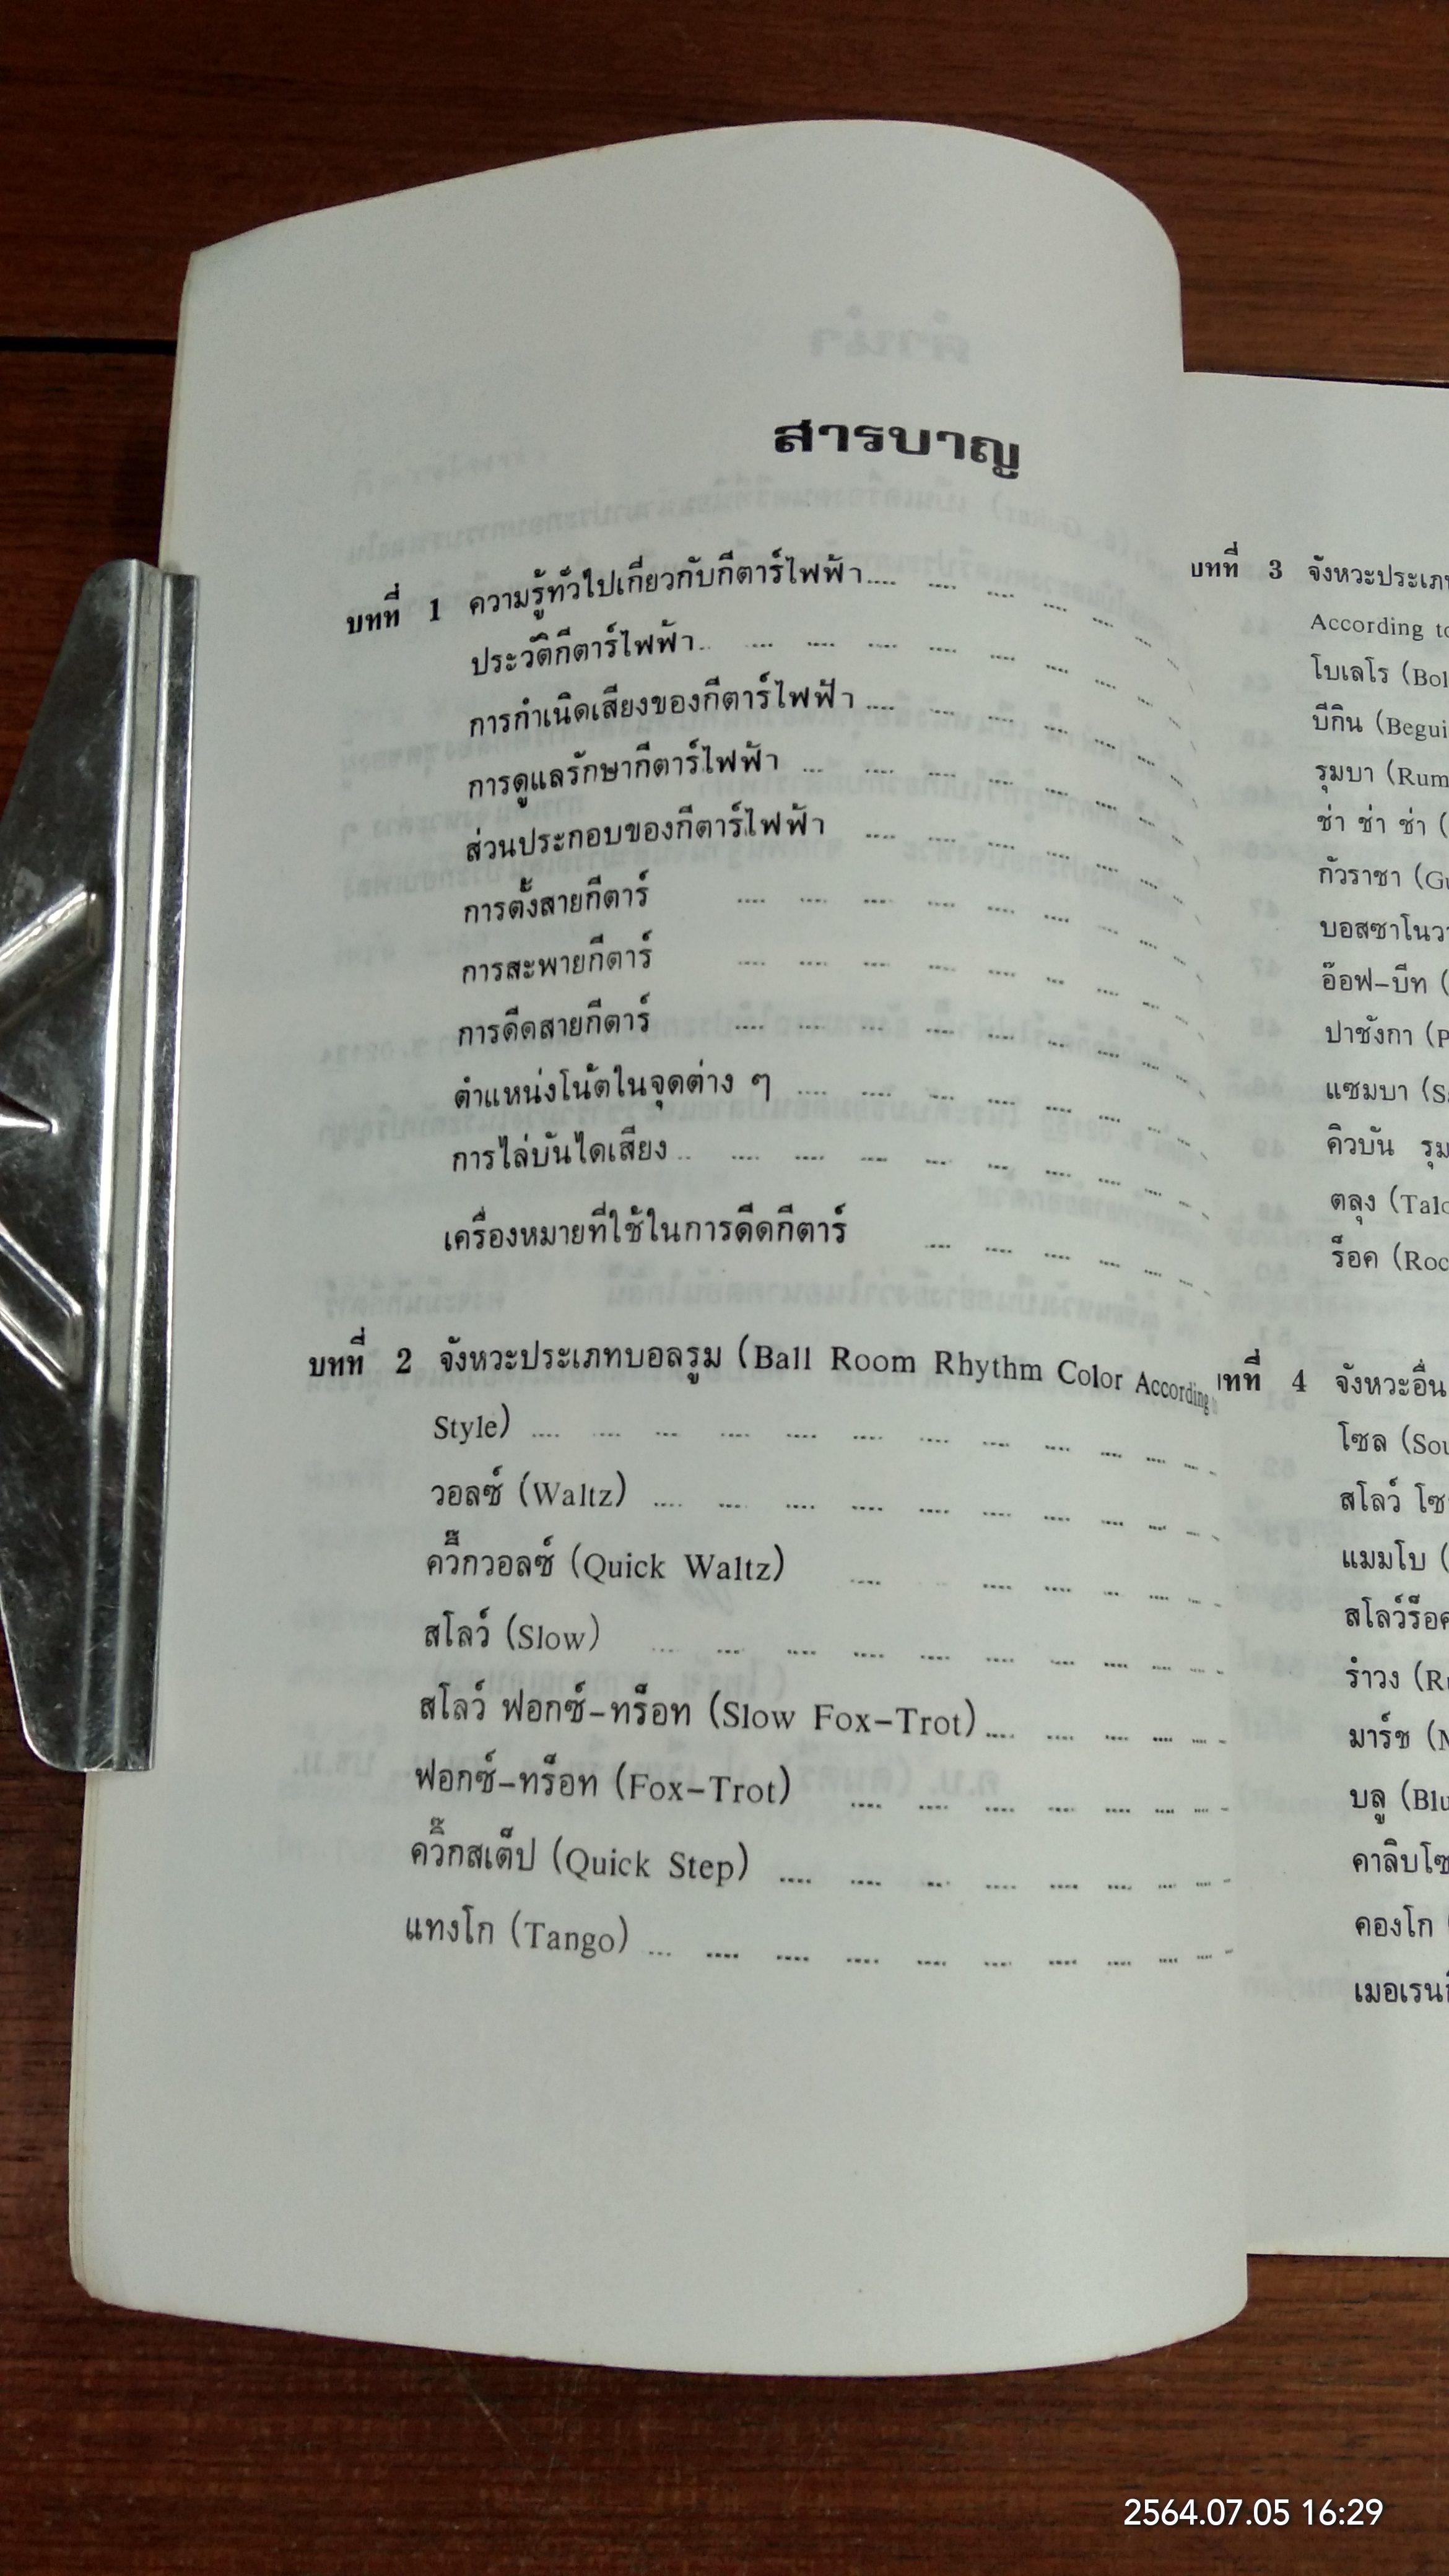 สารบาญ
บทที่ 1 ความรู้ทั่วไปเกี่ยวกับกีตาร์ไฟฟ้า
ประวัติกีตาร์ไฟฟ้า
การกำเนิดเสียงของกีตาร์ไฟฟ้า
การดูแลรักษากีตาร์ไฟฟ้า
ส่วนประกอบของกีตาร์ไฟฟ้า
การตั้งสายกีตาร์
การสะพายกีตาร์
การดีดสายกีตาร์
ตำแหน่งโน้ตในจุดต่าง ๆ
การไล่บันไดเสียง
เครื่องหมายที่ใช้ในการดีดกีตาร์
บทที่ 2 จังหวะประเภทบอลรูม (Ball Room Rhythm Color According
Style)
วอลซ์ (Waltz)
ควิ๊กวอลซ์ (Quick Waltz)
สโลว์ (Slow)
สโลว์ ฟอกซ์-ทร็อท (Slow Fox-Trot)
ฟอกซ์-ทร็อท (Fox-Trot)
ควิ๊กสเต็ป (Quick Step)
แทงโก (Tango)
บทที่ 3 จังหวะประเภ
According to
โบเลโร (Bol
บีกิน (Begui
รุมบา (Rum
ช่า ช่า ช่า (
กัวราชา (Gu
บอสซาโนวา
อ๊อฟ-บีท (
ปาชังกา (P
แซมบา (Sa
คิวบัน รุม
ตลุง (Talo
ร็อค (Roc
ทที่ 4 จังหวะอื่น
โซล (Sou
สโลว์ โซ
แมมโบ (
สโลว์ร็อค
รำวง (R
มาร์ช (M
บลู (Blu
คาลิบโซ
คองโก (
เมอเรน
2564.07.05 16:29